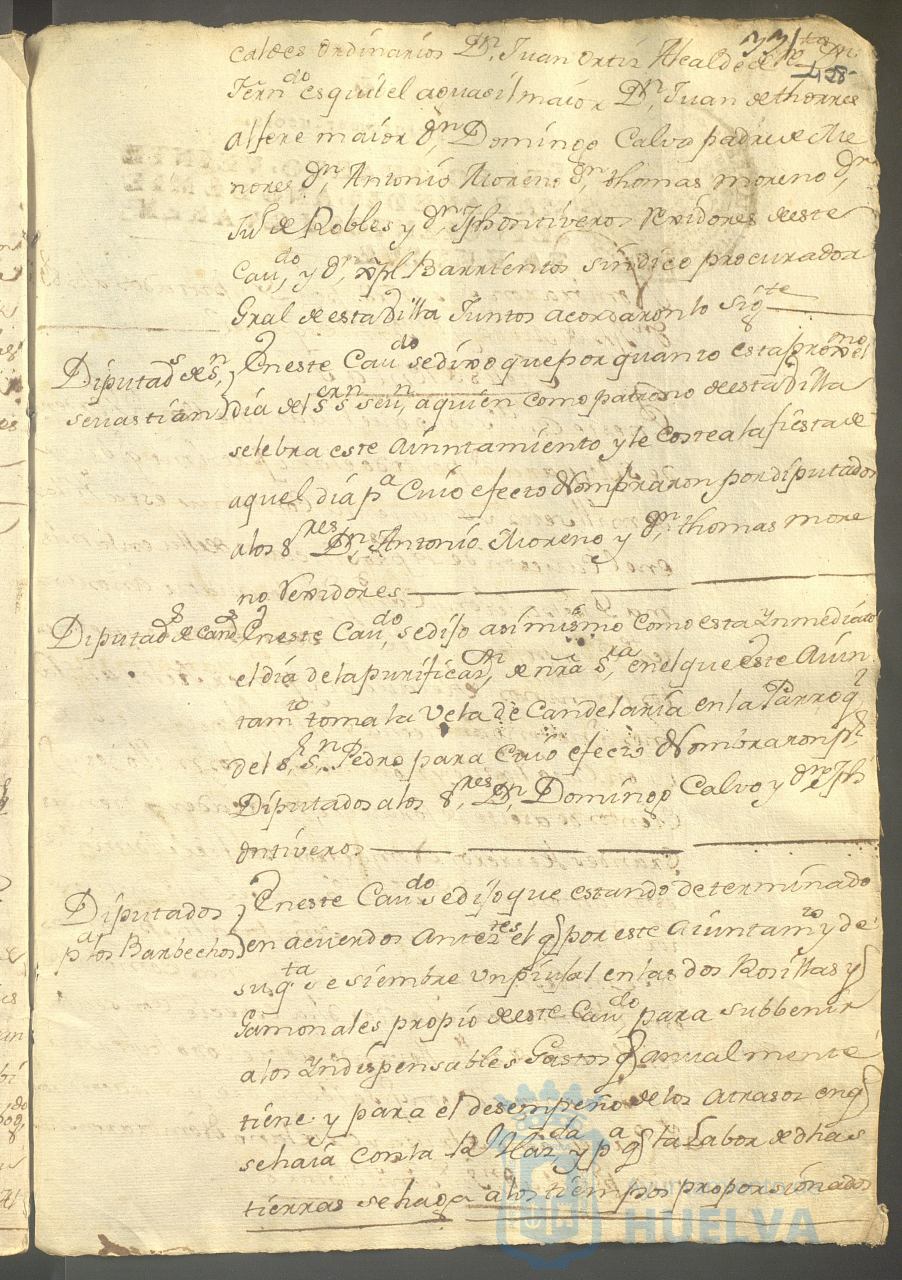 caldes ordinarios Dn. Juan Ortiz Alcalde de la
Ferndo esquibel aguasil maior Dn. Juan de thorres
alfere maior Dn. Domingo Calvo padre de Me
nores Dn. Antonio Moreno Dn. thomas moreno Dn.
Ju de Robles y Dn. Jph ontiveros Rexidores de este
Cavdo, y Dn. xpl Barrientos sindico procurador
Gral de esta Villa Juntos acordaron lo Sigte
Diputads de Sn.
sevastian
En este Cavdo se dixo que por quanto esta proxmo el
dia del Sr Sn seun, a quien como patrono de esta Villa
selebra este Aiuntamiento y le costea la fiesta de
aquel dia pa Cuio efecto Nombraron por diputados
a los Sres Dn. Antonio Moreno y Dn. thomas more
no Rexidores
Diputads de Cands
En este Cavdo, se dijo asimismo como esta Ynmediato
el dia de la purificaon, de nra Sra, en el que este Aiun
tamto toma la Vela de Candelaria en la Parroql
del Sr Sn Pedro para Cuio efecto Nombraron pr
Diputados a los Sres Dn Domingo Calvo y Dn. Jph
ontiveros
Diputados
pa los Barbechos
En este Cavdo se dijo que estando determinado
en acuerdos Anteres el q por este Aiuntamto y de
su qta se siembre un piujal en las dos Rosillas y
Gamonales propio de este Cavdo, para subbenir
a los Yndispensables Gastos q anualmente
tiene y para el desempeño de los atrasos en q
se haia con la Rl Hazda y pa q la Labor de dhas
tierras se haga a los tiempos proporsionados
HUELVA